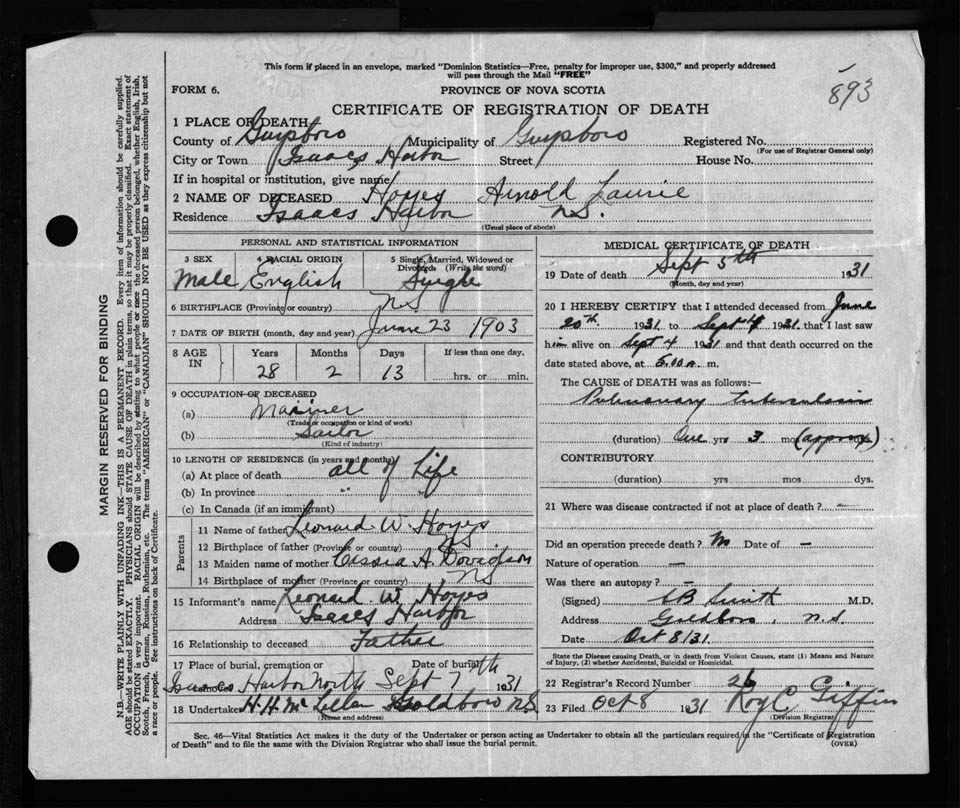 This form if placed in an envelope, marked "Dominion Statistics—Free, penalty for improper use, $300," and properly addressed
will pass through the Mail "FREE"
893
FORM 6. PROVINCE OF NOVA SCOTIA
CERTIFICATE OF REGISTRATION OF DEATH
1 PLACE OF DEATH
County of Guysboro Municipality of Guysboro Registered No.
(For use of Registrar General only)
City or Town Isaacs Harbor Street House No.
If in hospital or institution, give name
2 NAME OF DECEASED Hayes Arnold Laurie
Residence Isaacs Harbor N.S.
(Usual place of abode)
PERSONAL AND STATISTICAL INFORMATION
3 SEX 4 RACIAL ORIGIN 5 Single, Married, Widowed or
Divorced (Write the word)
Male English Single
6 BIRTHPLACE (Province or country) N.S
7 DATE OF BIRTH (month, day and year) June 23 1903
8 AGE IN Years Months Days If less than one day,
28 2 13 hrs. or min.
9 OCCUPATION OF DECEASED
(a) Mariner
(Trade or occupation or kind of work)
(b) Sailor
(Kind of industry)
10 LENGTH OF RESIDENCE (in years and months)
(a) At place of death all of Life
(b) In province "
(c) In Canada (if an immigrant)
Parents
11 Name of father Leonard W. Hayes
12 Birthplace of father (Province or country) NS
13 Maiden name of mother A. Davidson
14 Birthplace of mother (Province or country) NS
15 Informant's name Leonard W. Hayes
Address Isaacs Harbor
16 Relationship to deceased Father
17 Place of burial, cremation or Date of burial
Isaacs Harbor North Sept 7th 1931
18 Undertaker H. H. McLellan Goldboro N.S
(Name and address)
MEDICAL CERTIFICATE OF DEATH
19 Date of death Sept 5th 1931
(Month, day and year)
20 I HEREBY CERTIFY that I attended deceased from June
20th 1931 to Sept 4 1931 that I last saw
him alive on Sept 4 1931 and that death occurred on the
date stated above, at 6.00 a. m.
The CAUSE of DEATH was as follows:—
Pulmonary Tuberculosis
(duration) One yrs 3 mos (approx) dys
CONTRIBUTORY
(duration) yrs mos dys.
21 Where was disease contracted if not at place of death? —
Did an operation precede death? No Date of —
Nature of operation —
Was there an autopsy? —
(Signed) Smith M.D.
Address Goldboro, N.S.
Date Oct 8/31.
State the Disease causing Death, or in death from Violent Causes, state (1) Means and Nature
of Injury, (2) whether Accidental, Suicidal or Homicidal.
22 Registrar's Record Number 26
23 Filed Oct 8 1931 Roy C Giffin
(Division Registrar)
Sec. 46—Vital Statistics Act makes it the duty of the Undertaker or person acting as Undertaker to obtain all the particulars required in the "Certificate of Registration
of Death" and to file the same with the Division Registrar who shall issue the burial permit. (OVER)
MARGIN RESERVED FOR BINDING
N.B.—WRITE PLAINLY WITH UNFADING INK—THIS IS A PERMANENT RECORD. Every item of information should be carefully supplied.
AGE should be stated EXACTLY. PHYSICIANS should STATE CAUSE OF DEATH in plain terms, so that it may be properly classified. Exact statement of
OCCUPATION is very important. RACIAL ORIGIN will be described by stating to what people or race the deceased person belonged, whether English, Irish,
Scotch, French, German, Russian, Ruthenian, etc. The terms "AMERICAN" or "CANADIAN" SHOULD NOT BE USED as they express citizenship but not
a race or people. See instructions on back of Certificate.